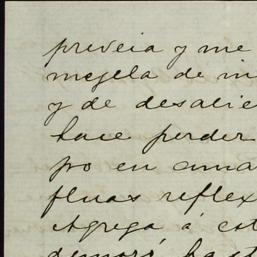 preveia y me
mezcla de in
y de desalie
hace perder
po en ama
fluas reflex
Agrega á est
demoró hast